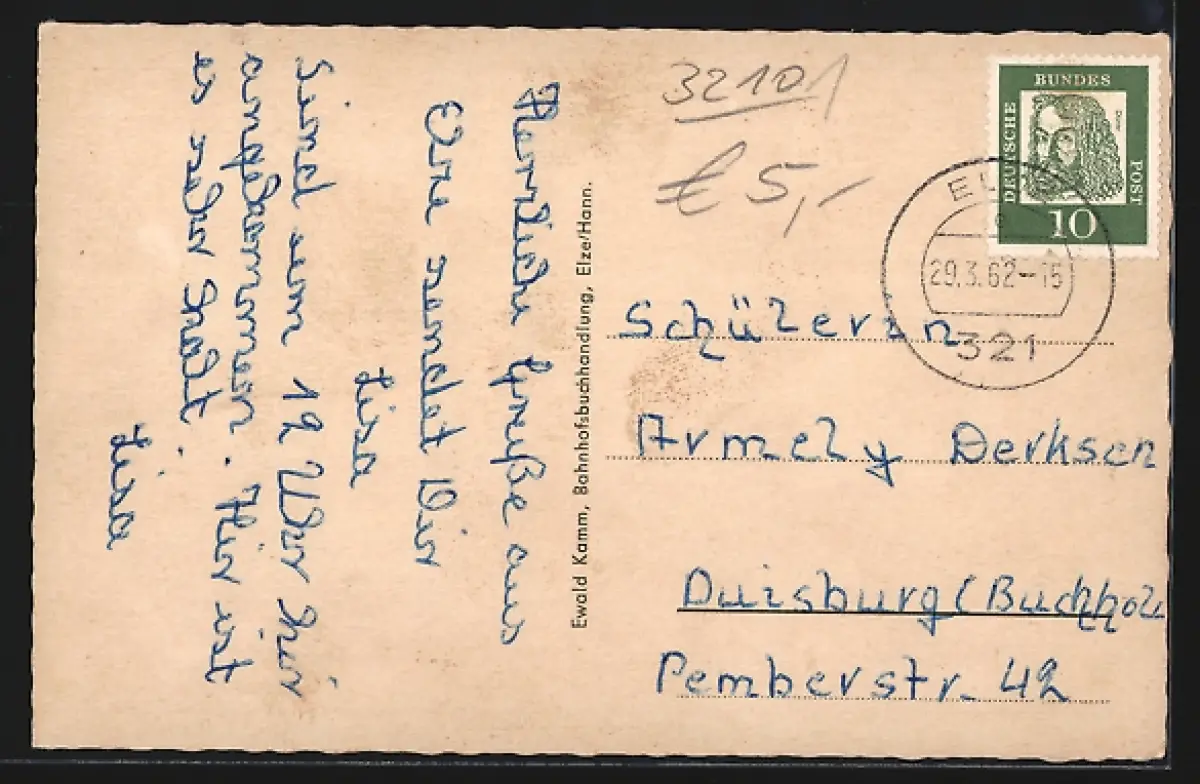 Herzliche Grüße aus
Elze sendet Dir
Lisa
Sind um 12 Uhr hir
angekommen. Hir ist
es sehr kalt.
Lisa
Ewald Kamm, Bahnhofsbuchhandlung, Elze/Hann.
32101
€ 5,-
DEUTSCHE
BUNDES
POST
10
29.3.62-15
321
Schülerin
Armely Derksen
Duisburg (Buchholz
Pemberstr. 42